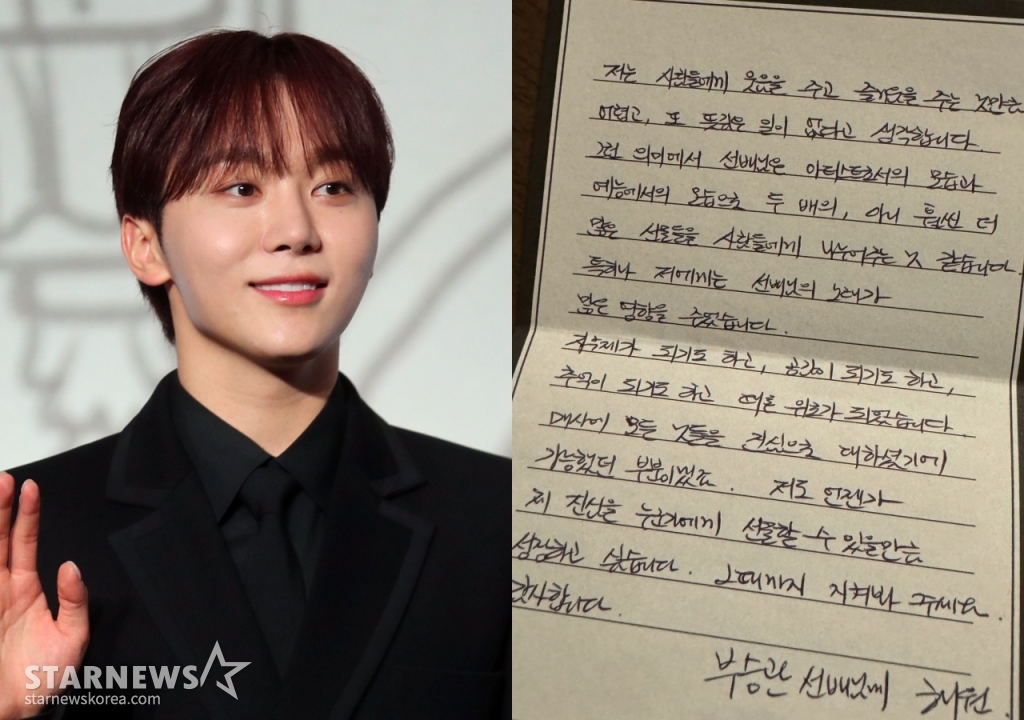 저는 사람들에게 웃음을 주고 즐거움을 주는 것만큼
어렵고, 또 뜻깊은 일이 없다고 생각합니다.
그런 의미에서 선배님은 아티스트로서의 모습과
예능에서의 모습으로 두 배의, 아니 훨씬 더
많은 선물들을 사람들에게 나누어주는 것 같습니다.
특히나 저에게는 선배님의 노래가
많은 영향을 주었습니다.
되기도 하고, 공감이 되기도 하고,
추억이 되기도 하고 때론 위로가 되었습니다.
매사에 모든 것들을 진심으로 대하셨기에
가능했던 부분이겠죠. 저도 언젠가
제 진심을 누군가에게 선물할 수 있을만큼
성장하고 싶습니다. 그때까지 지켜봐 주세요.
감사합니다.
선배님께
STARNEWS
starnewskorea.com